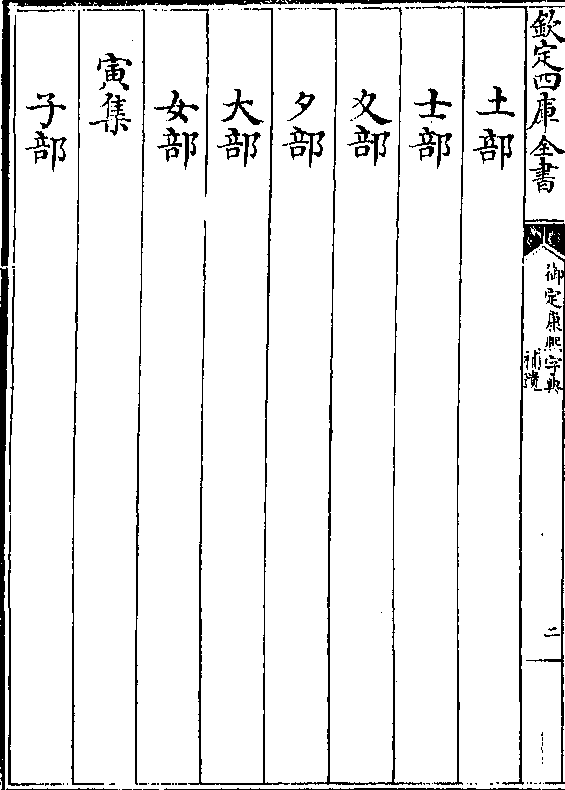 欽定四庫全書
御定康熙字典
補遺
二
土部
士部
夊部
夕部
大部
女部
寅集
子部